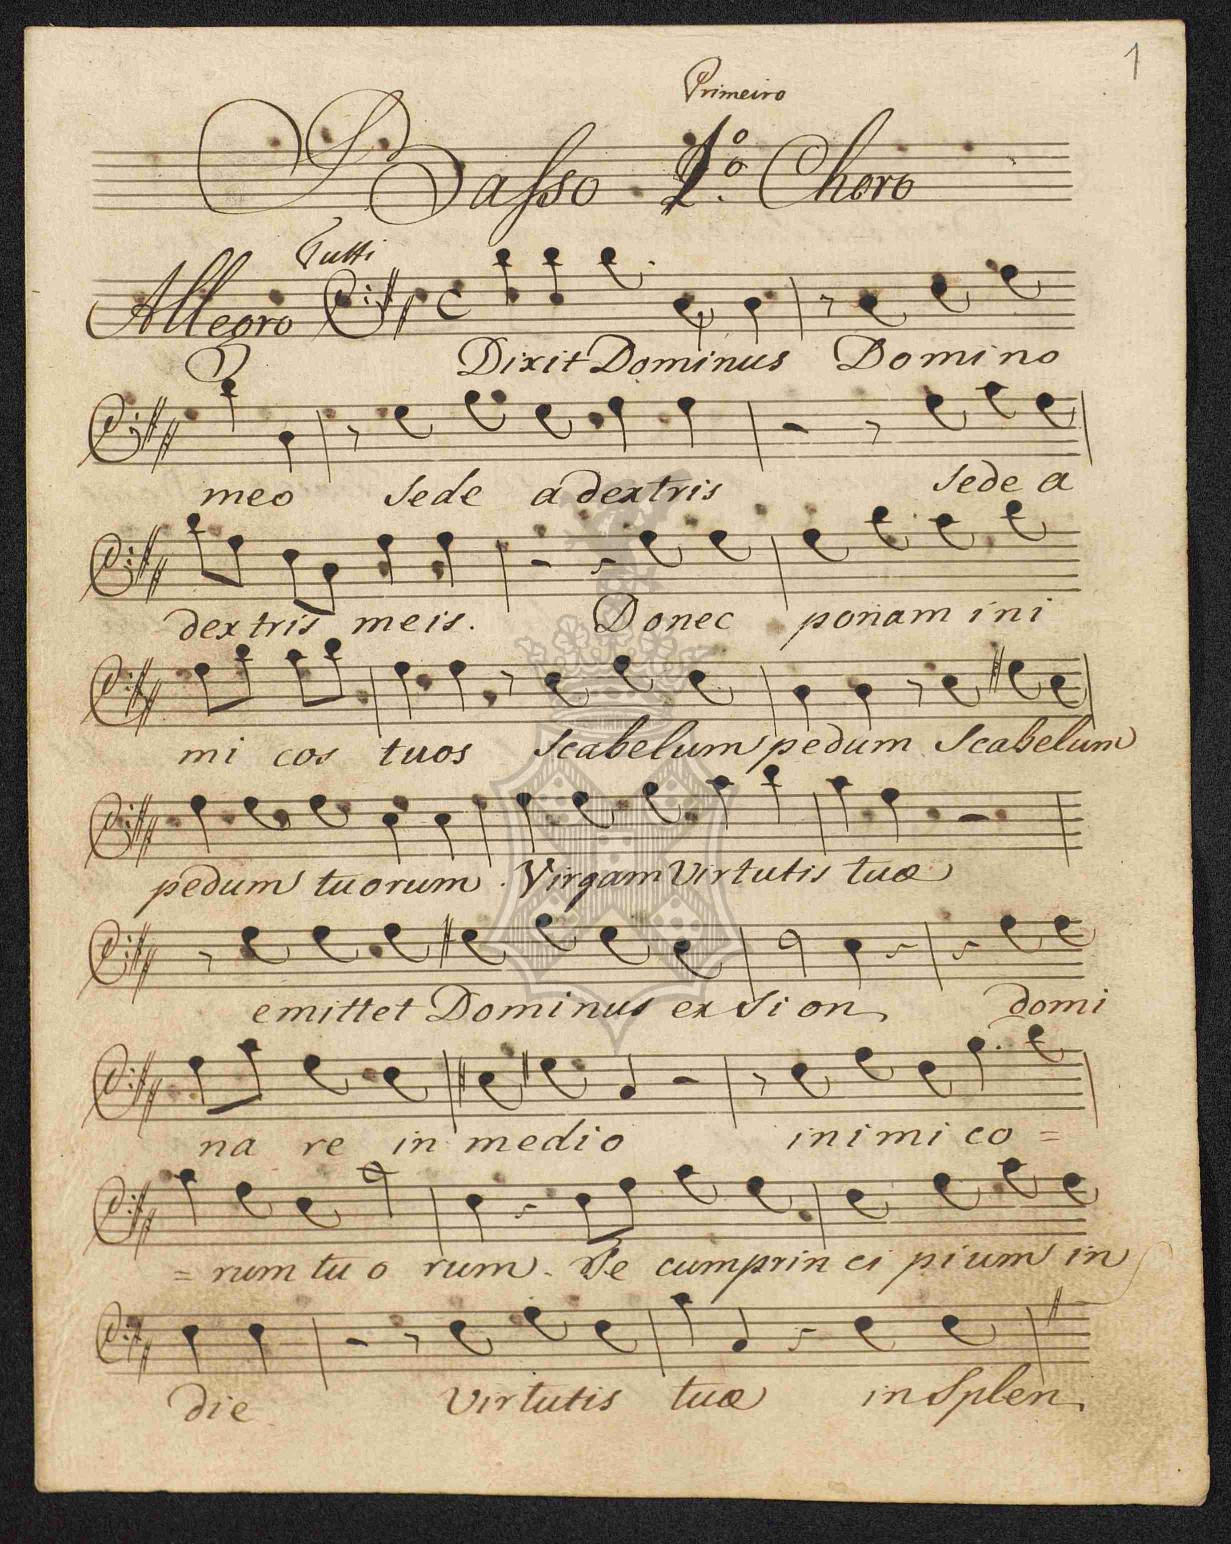 1
Primeiro
Basso 1º Choro
Tutti
Allegro
Dixit Dominus Domino
meo sede a dextris sede a
dextris meis. Donec ponam ini
mi cos tuos scabelum pedum scabelum
pedum tuorum. Virgam Virtutis tuæ
emittet Dominus ex Sion domi
na re in medio inimi co =
= rum tu o rum. Te cum prin ci pium in
die Virtutis tuæ in Splen